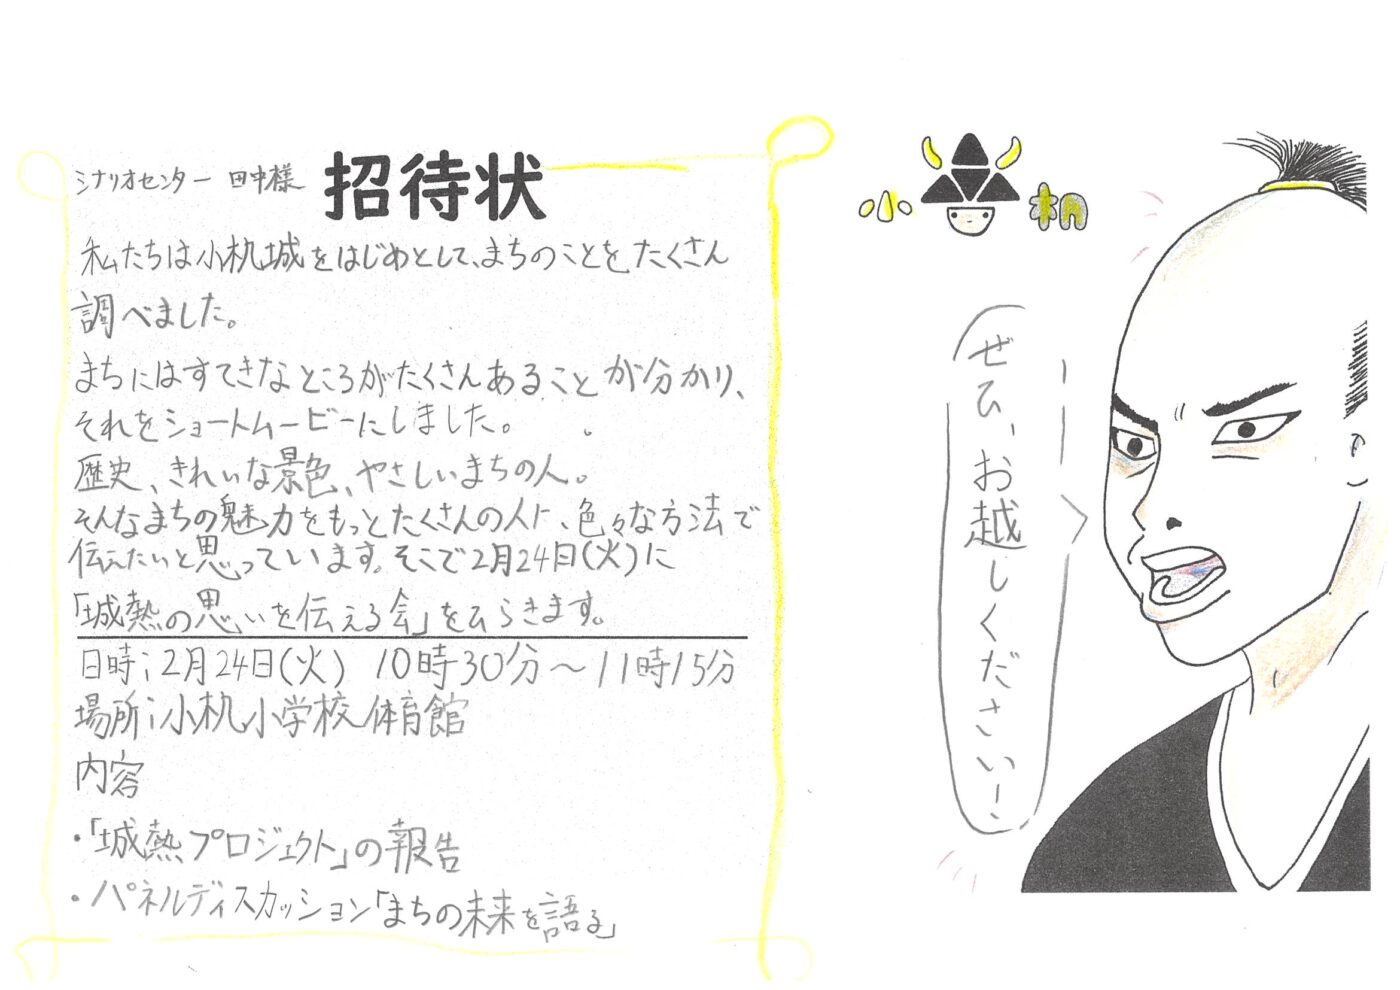 シナリオセンター 田中様
招待状
私たちは小机城をはじめとして、まちのことをたくさん
調べました。
まちにはすてきなところがたくさんあることが分かり、
それをショートムービーにしました。
歴史、きれいな景色、やさしいまちの人。
そんなまちの魅力をもっとたくさんの人に、色々な方法で
伝えたいと思っています。そこで2月24日(火)に
「城熱の思いを伝える会」をひらきます。
日時:2月24日(火) 10時30分〜11時15分
場所:小机小学校体育館
内容
・「城熱プロジェクト」の報告
・パネルディスカッション「まちの未来を語る」
小机
ぜひ、お越しください!